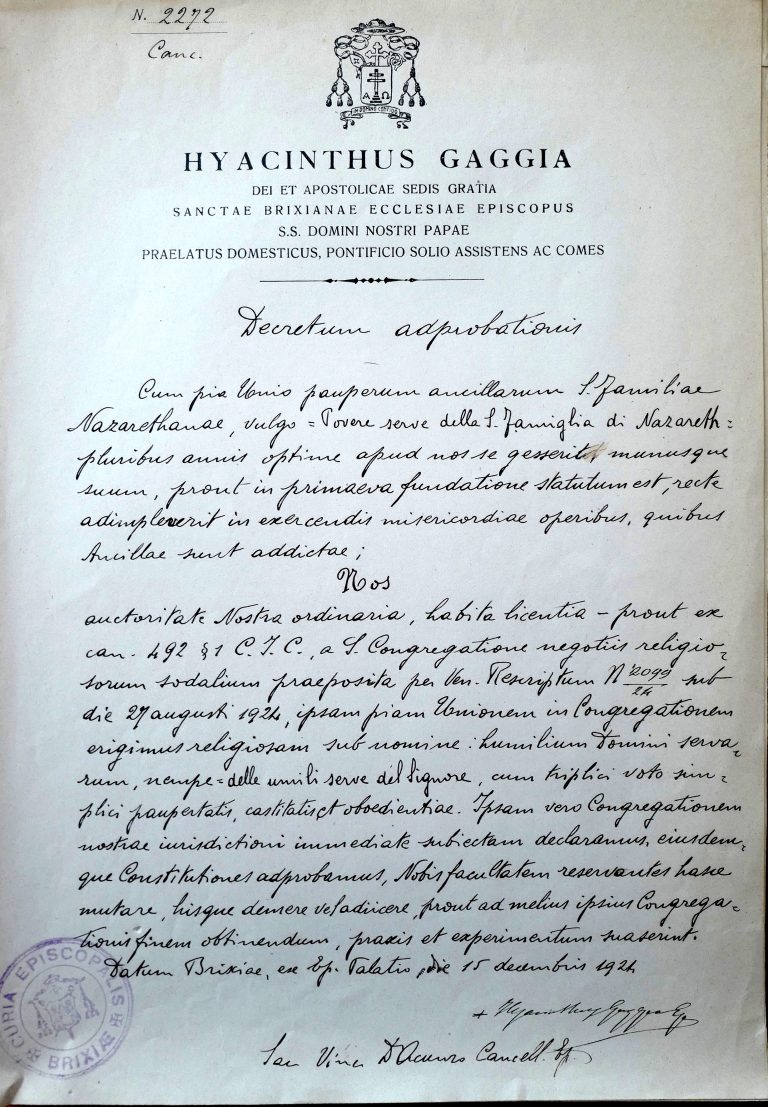 N. 2272
Canc.
Α Ω
IN DOMINO CONFIDO
HYACINTHUS GAGGIA
DEI ET APOSTOLICAE SEDIS GRATIA
SANCTAE BRIXIANAE ECCLESIAE EPISCOPUS
S.S. DOMINI NOSTRI PAPAE
PRAELATUS DOMESTICUS, PONTIFICIO SOLIO ASSISTENS AC COMES
Decretum adprobationis
Cum pia Unio pauperum ancillarum S. Familiae
Nazarethanae, vulgo = Povere serve della S. Famiglia di Nazareth =
pluribus annis optime apud nos se gesserit, munusque
suum, prout in primaeva fundatione statutum est, recte
adimpleverit in exercendis misericordiae operibus, quibus
Ancillae sunt addictae;
Nos
auctoritate Nostra ordinaria, habita licentia - prout ex
can. 492 § 1 C. I. C., a S. Congregatione negotiis religio=
sorum sodalium praeposita per Ven. Rescriptum N. 2099/24 sub
die 27 augusti 1924, ipsam piam Unionem in Congregationem
erigimus religiosam sub nomine: humilium Domini serva=
rum, nempe = delle umili serve del Signore, cum triplici voto sim=
plici paupertatis, castitatis et oboedientiae. Ipsam vero Congregationem
nostrae iurisdictioni immediate subiectam declaramus, eiusdem=
que Constitutiones adprobamus, Nobis facultatem reservantes hasce
mutare, hisque demere vel adiicere, prout ad melius ipsius Congrega=
tionis finem obtinendum, praxis et experimentum suaserint.
Datum Brixiae, ex Ep. Palatio, die 15 decembris 1924
+ Hyacinthus Gaggia Ep.
Sac. Cancell. Ep.
CURIA EPISCOPALIS
BRIXIAE